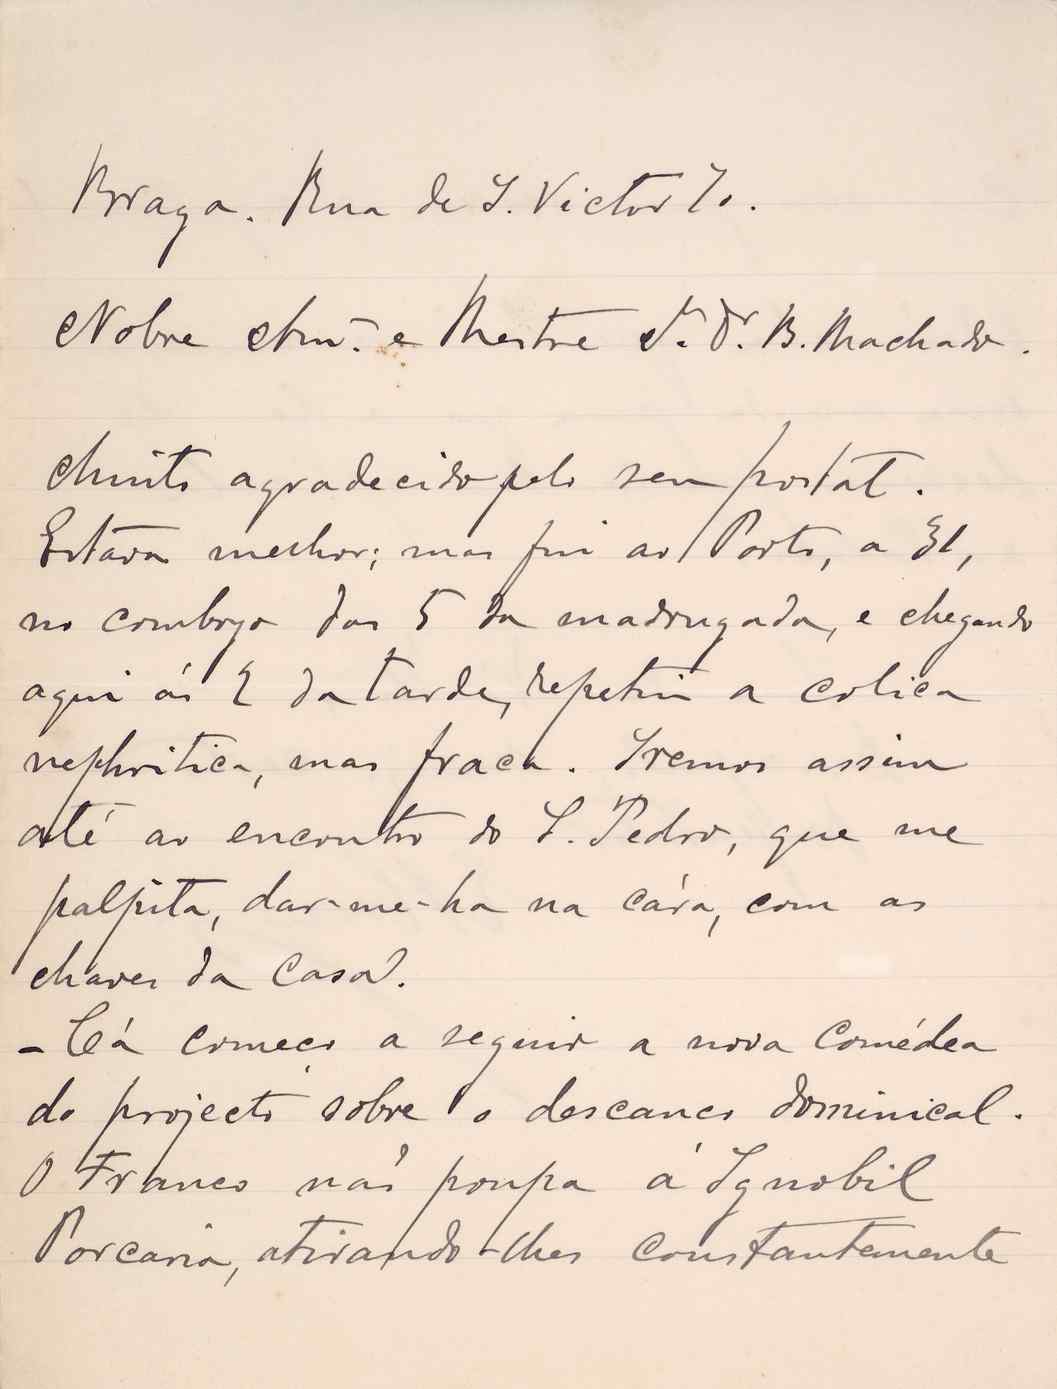 Braga. Rua de S. Victor 70.
Nobre Am.º e Mestre Sr. Dr. B. Machado.
Muito agradecido pelo seu postal.
Estava melhor; mas fui ao Porto, a 31,
no comboyo das 5 da madrugada, e chegando
aqui ás 2 da tarde, repetiu a colica
nephritica, mas fraca. Iremos assim
até ao encontro do S. Pedro, que me
palpita, dar-me-ha na cára, com as
chaves da casa.
- Cá comeco a seguir a nova comédea
do projecto sobre o descanco dominical.
O Franco não poupa á Ignobil
Porcaria, atirando-lhes constantemente